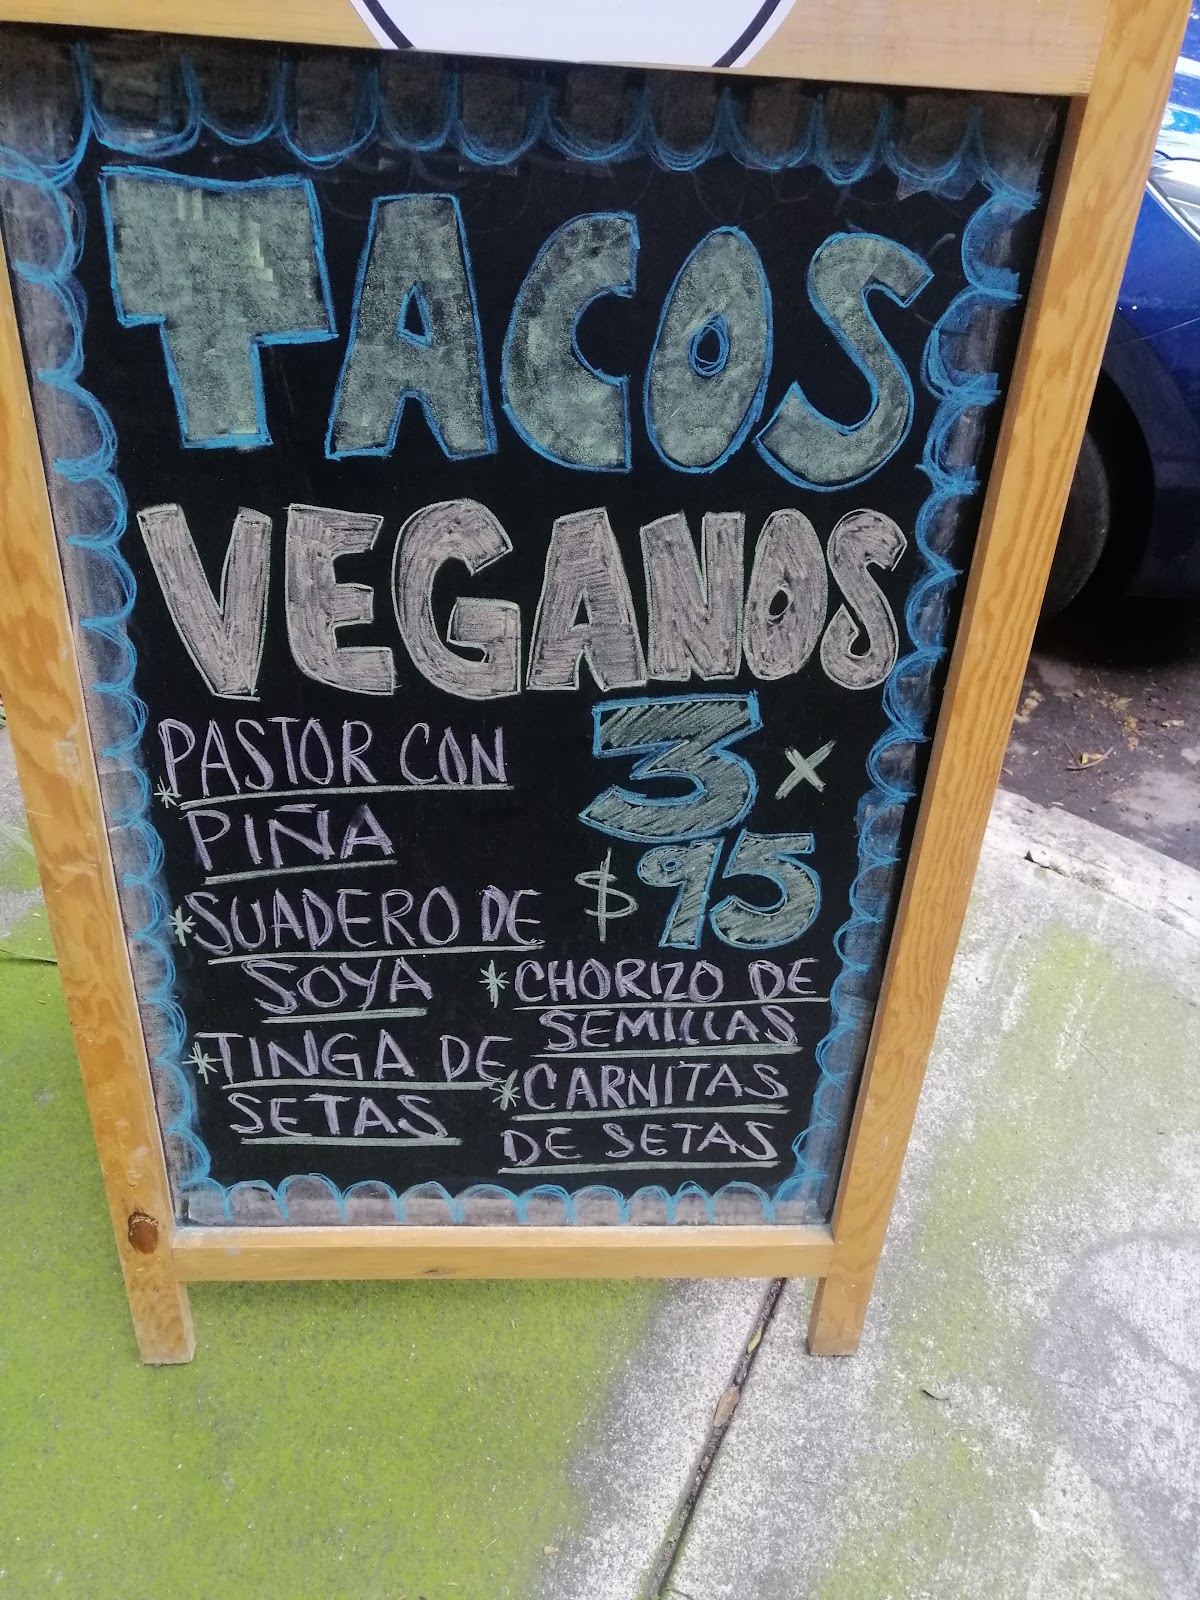 TACOS
VEGANOS
3 x
$95
* PASTOR CON
PIÑA
* SUADERO DE
SOYA
* TINGA DE
SETAS
* CHORIZO DE
SEMILLAS
* CARNITAS
DE SETAS